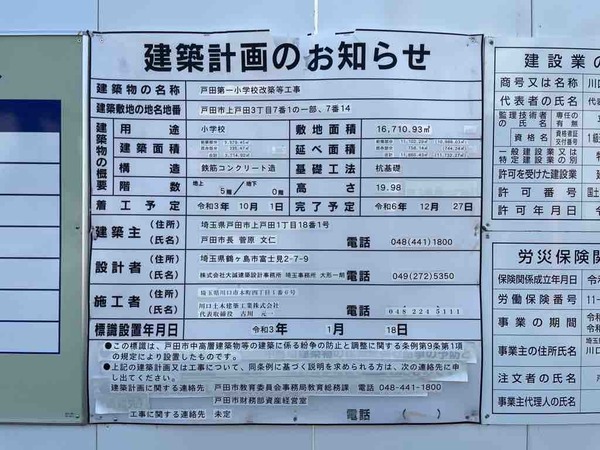 建築計画のお知らせ
建築物の名称 戸田第一小学校改築等工事
建築敷地の地名地番 戸田市上戸田3丁目7番1の一部、7番14
建築物の概要
用途 小学校 敷地面積 16,710.93㎡
建築面積 延べ面積
構造 鉄筋コンクリート造 基礎工法 杭基礎
階数 地上 5階/地下 0階 高さ 19.98
着工予定 令和3年 10月 1日 完了予定 令和6年 12月 27日
建築主 (住所) 埼玉県戸田市上戸田1丁目18番1号
(氏名) 戸田市長 菅原 文仁 電話 048(441)1800
設計者 (住所) 埼玉県鶴ヶ島市富士見2-7-9
(氏名) 株式会社大誠建築設計事務所 埼玉事務所 大形一朗 電話 049(272)5350
施工者 (住所) 埼玉県川口市本町四丁目1番6号
(氏名) 川口土木建築工業株式会社
代表取締役 古川 元一 電話 048 224 5111
標識設置年月日 令和3年 1月 18日
●この標識は、戸田市中高層建築物等の建築に係る紛争の防止と調整に関する条例第9条第1項
の規定により設置したものです。
●上記の建築計画又は工事について、同条例に基づく説明を求められる方は、次の連絡先に申
し出てください。
建築計画に関する連絡先 戸田市教育委員会事務局教育総務課 電話 048-441-1800
戸田市財務部資産経営室
工事に関する連絡先 未定 電話 ( )
建設業の
商号又は名称 川口
代表者の氏名 代表
監理技術者の氏名 専任の有無
資格名 資格者証交付番号
一般建設業又は
特定建設業の別
許可を受けた建設業 建
許可番号 国土
許可年月日 令和
労災保険関
保険関係成立年月日 令
労働保険番号 11-
事業の期間 令和
令和
事業主の住所氏名
川口
注文者の氏名
事業主代理人の氏名